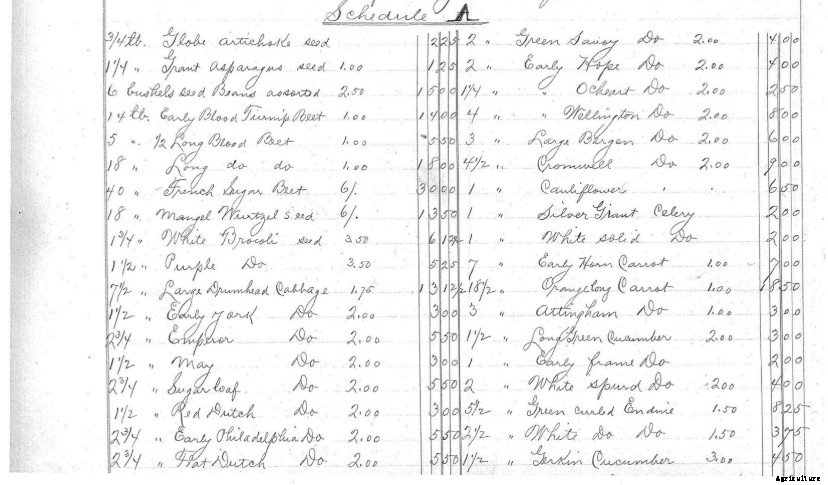 Schedule A
3/4 lb. Globe artichoke seed 2 25
1 1/4 " Grant asparagus seed 1.00 1 25
6 bushels seed Beans assorted 2.50 15 00
14 lb. Early Blood Turnip Beet 1.00 14 00
5 " 1/2 Long Blood Beet 1.00 5 50
18 " Long do do 1.00 18 00
40 " French Sugar Beet 6/. 30 00
18 " Mangel Wurtzel seed 6/. 13 50
1 3/4 " White Brocoli seed 3.50 6 12 1/2
1 1/2 " Purple Do 3.50 5 25
7 1/2 " Large Drumhead Cabbage 1.75 13 12 1/2
1 1/2 " Early York Do 2.00 3 00
2 3/4 " Emperor Do 2.00 5 50
1 1/2 " May Do 2.00 3 00
2 3/4 " Sugar loaf Do 2.00 5 50
1 1/2 " Red Dutch Do 2.00 3 00
2 3/4 " Early Philadelphia Do 2.00 5 50
2 3/4 " Flat Dutch Do 2.00 5 50
2 " Green Savoy Do 2.00 4 00
2 " Early Hope Do 2.00 4 00
1 1/4 " " Ocheart Do 2.00 2 50
4 " " Wellington Do 2.00 8 00
3 " Large Bergen Do 2.00 6 00
4 1/2 " Cromwell Do 2.00 9 00
1 " Cauliflower " " 6 50
1 " Silver Grant Celery 2 00
1 " White solid Do 2 00
7 " Early Horn Carrot 1.00 7 00
18 1/2 " Orangelong Carrot 1.00 18 50
3 " Attingham Do 1.00 3 00
1 1/2 " Long Green Cucumber 2.00 3 00
1 " Early frame Do 2 00
2 " White spurd Do 2 00 4 00
5 1/2 " Green curled Endine 1.50 8 25
2 1/2 " White Do Do 1.50 3 75
1 1/2 " Gerkin Cucumber 3.00 4 50
Agriculture